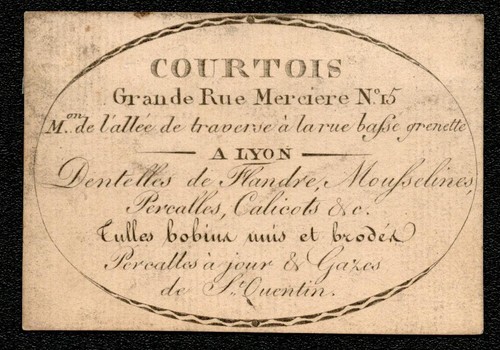 COURTOIS
Grande Rue Merciere No. 15
Mon. de l'allée de traverse à la rue basse grenette
A LYON
Dentelles de Flandre, Mousselines,
Percalles, Calicots &c.
Tulles bobins unis et brodés
Percalles à jour & Gazes
de St. Quentin.